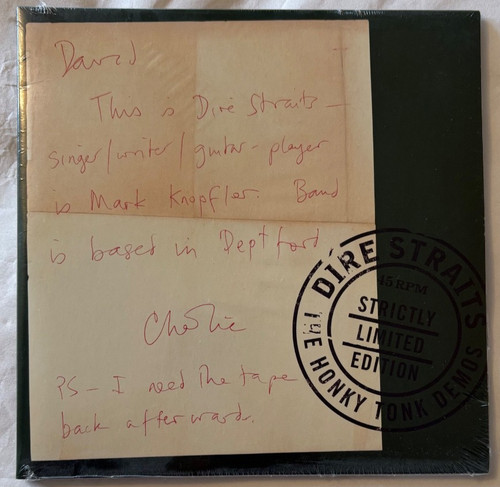 David
This is Dire Straits –
singer/writer/guitar-player
is Mark Knopfler. Band
is based in Deptford
Charlie
PS – I need the tape
back afterwards.
DIRE STRAITS
45 RPM
STRICTLY
LIMITED
EDITION
THE HONKY TONK DEMOS